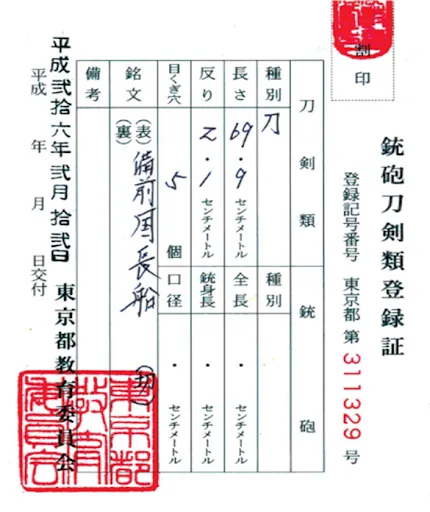 割印
銃砲刀剣類登録証
登録記号番号 東京都 第 311329 号
刀剣類
銃砲
種別 刀
種別
長さ 69・9 センチメートル
全長 ・ センチメートル
反り 2・1 センチメートル
銃身長 ・ センチメートル
目くぎ穴 5 個
口径 ・ センチメートル
銘文
(表) 備前国長船 (切)
(裏)
備考
平成弐拾六年弐月拾弐日
平成 年 月 日交付
東京都教育委員会
東京都教育委員会